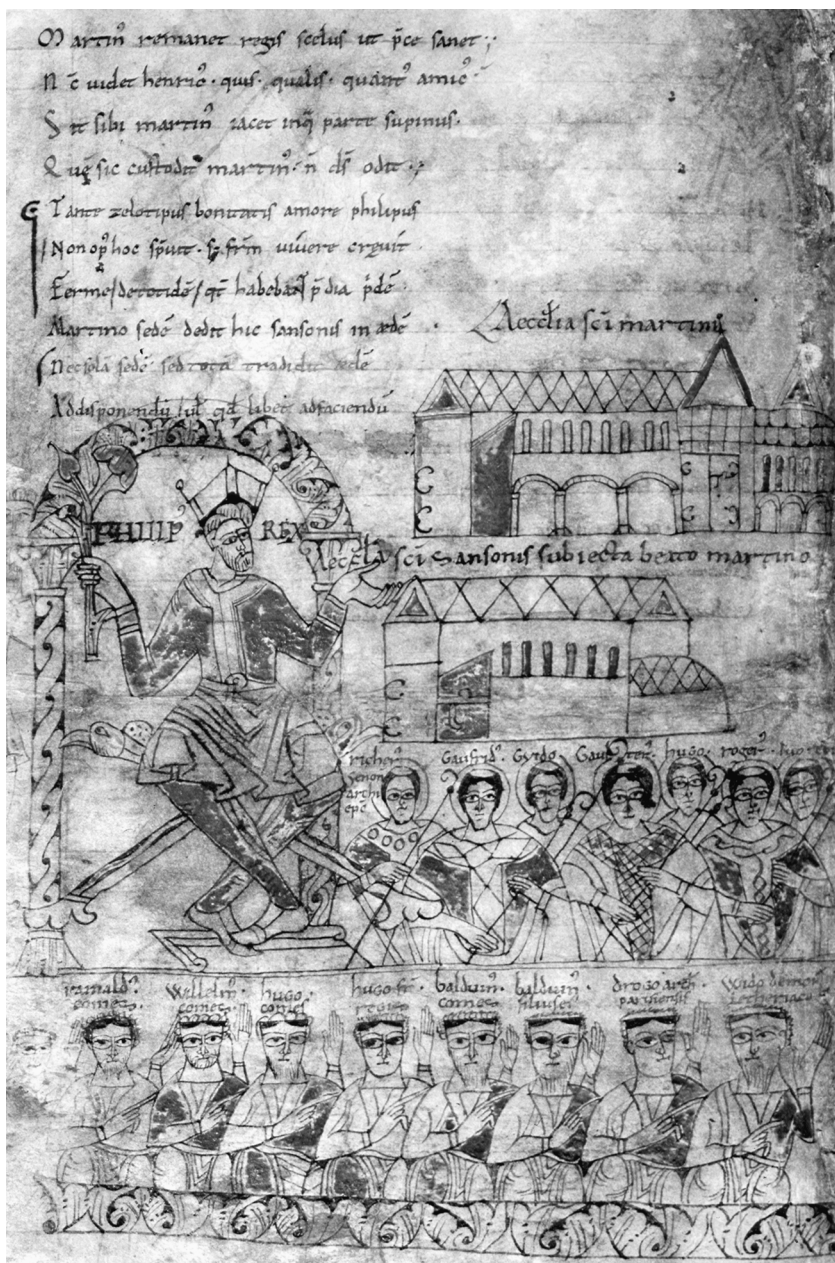 Martin⁹ remanet regis scelus ut p̄ce sanet
N c̄ uidet henric⁹ · quis · qualis · quant⁹ amic⁹
Sit sibi martin⁹ iacet in q̄ parte supinus ·
Quę sic custodit martin⁹ · n̄ d̄s odit
Tante zelotipus bonitatis amore philipus
Non op⁹ hoc spuit · s; fr̄m uiuere creuit
Ferme
Martino sedē dedit hic sansonis in ædē
Nec solā sedē sed totā tradidit ædē
Ad disponendū ł qd libet ad faciendū
Aeccła sc̄i martini
PHILIP⁹ REX
Aeccła sc̄i Sansonis subiecta beato martino
richer⁹ senon archi epc̄
Gaufrid⁹ · Gųydo · Gaulter⁹ · hugo · roger⁹ · Iuo
rainald⁹ comes
Willelm⁹ comes
hugo comes
hugo fr̄ regis
balduin⁹ comes
balduin⁹ filius ei⁹
drogo
Wido de mon